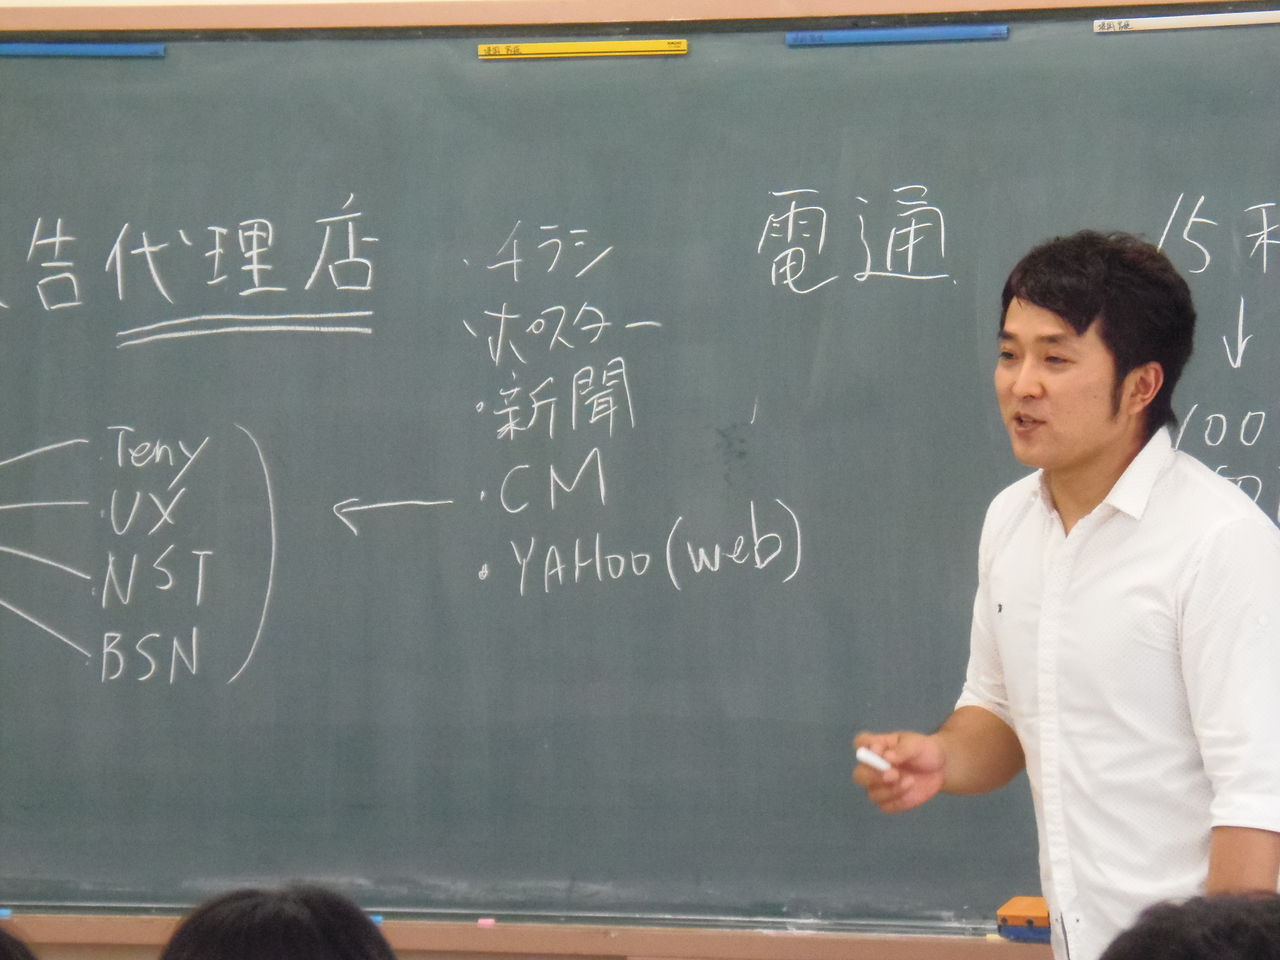 告代理店
・Teny
・UX
・NST
・BSN
・チラシ
・ポスター
・新聞
・CM
・YAHoo(web)
電通
15秒
↓
100